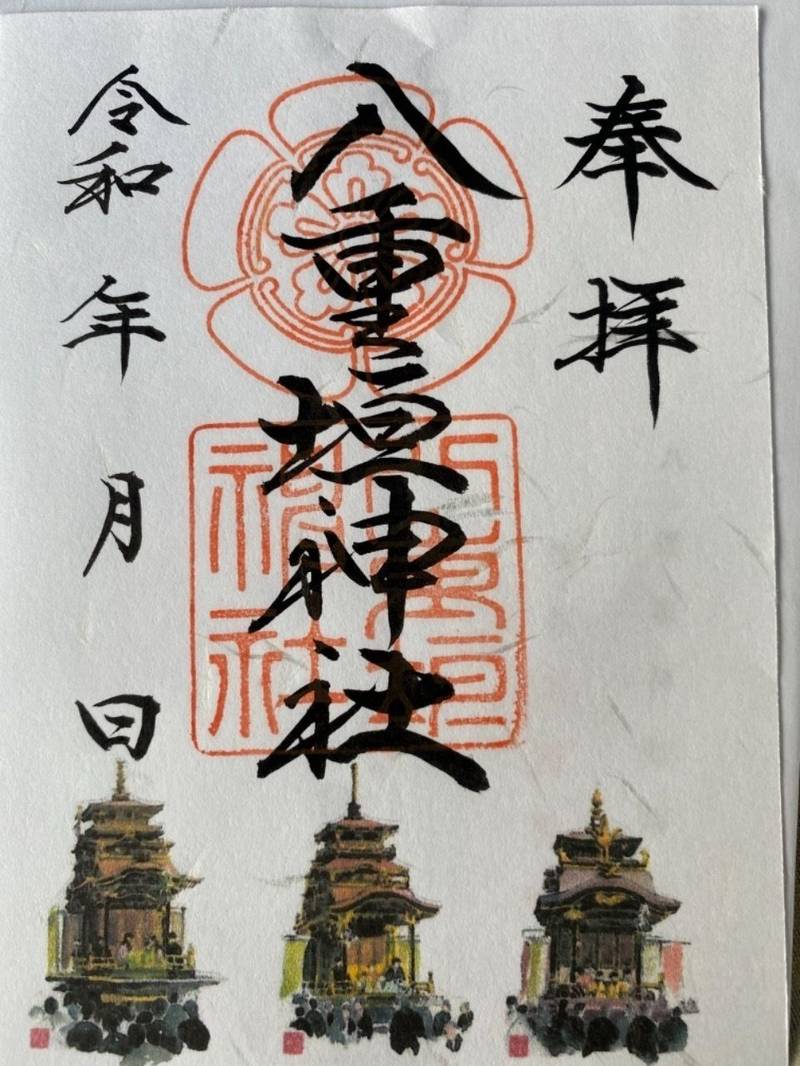 奉拝
八重垣神社
八重垣
神社
令和 年 月 日